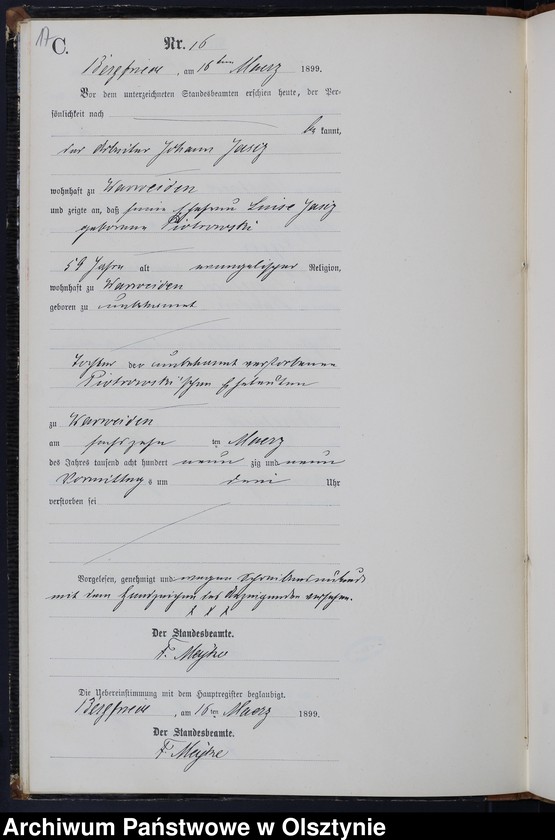 17
C.
Nr. 16
Bergfriede, am 16ten Maerz 1899.
Vor dem unterzeichneten Standesbeamten erschien heute, der Per-
sönlichkeit nach
be kannt,
der Arbeiter Johann Jasiz
wohnhaft zu Warweiden
und zeigte an, daß seine Ehefrau Luise Jasiz
geborene Piotrowski
59 Jahre alt evangelischer Religion,
wohnhaft zu Warweiden
geboren zu unbekannt
Tochter der unbekannt verstorbenen
Piotrowski'schen Eheleuten
zu Warweiden
am sechszehn ten Maerz
des Jahres tausend acht hundert neun zig und neun
Vormittag s um drei Uhr
verstorben sei
Vorgelesen, genehmigt und wegen Schreibensunkunde
mit dem Handzeichen des Anzeigenden versehen.
x x x
Der Standesbeamte.
F.
Die Uebereinstimmung mit dem Hauptregister beglaubigt.
Bergfriede, am 16ten Maerz 1899.
Der Standesbeamte.
F.
Archiwum Państwowe w Olsztynie